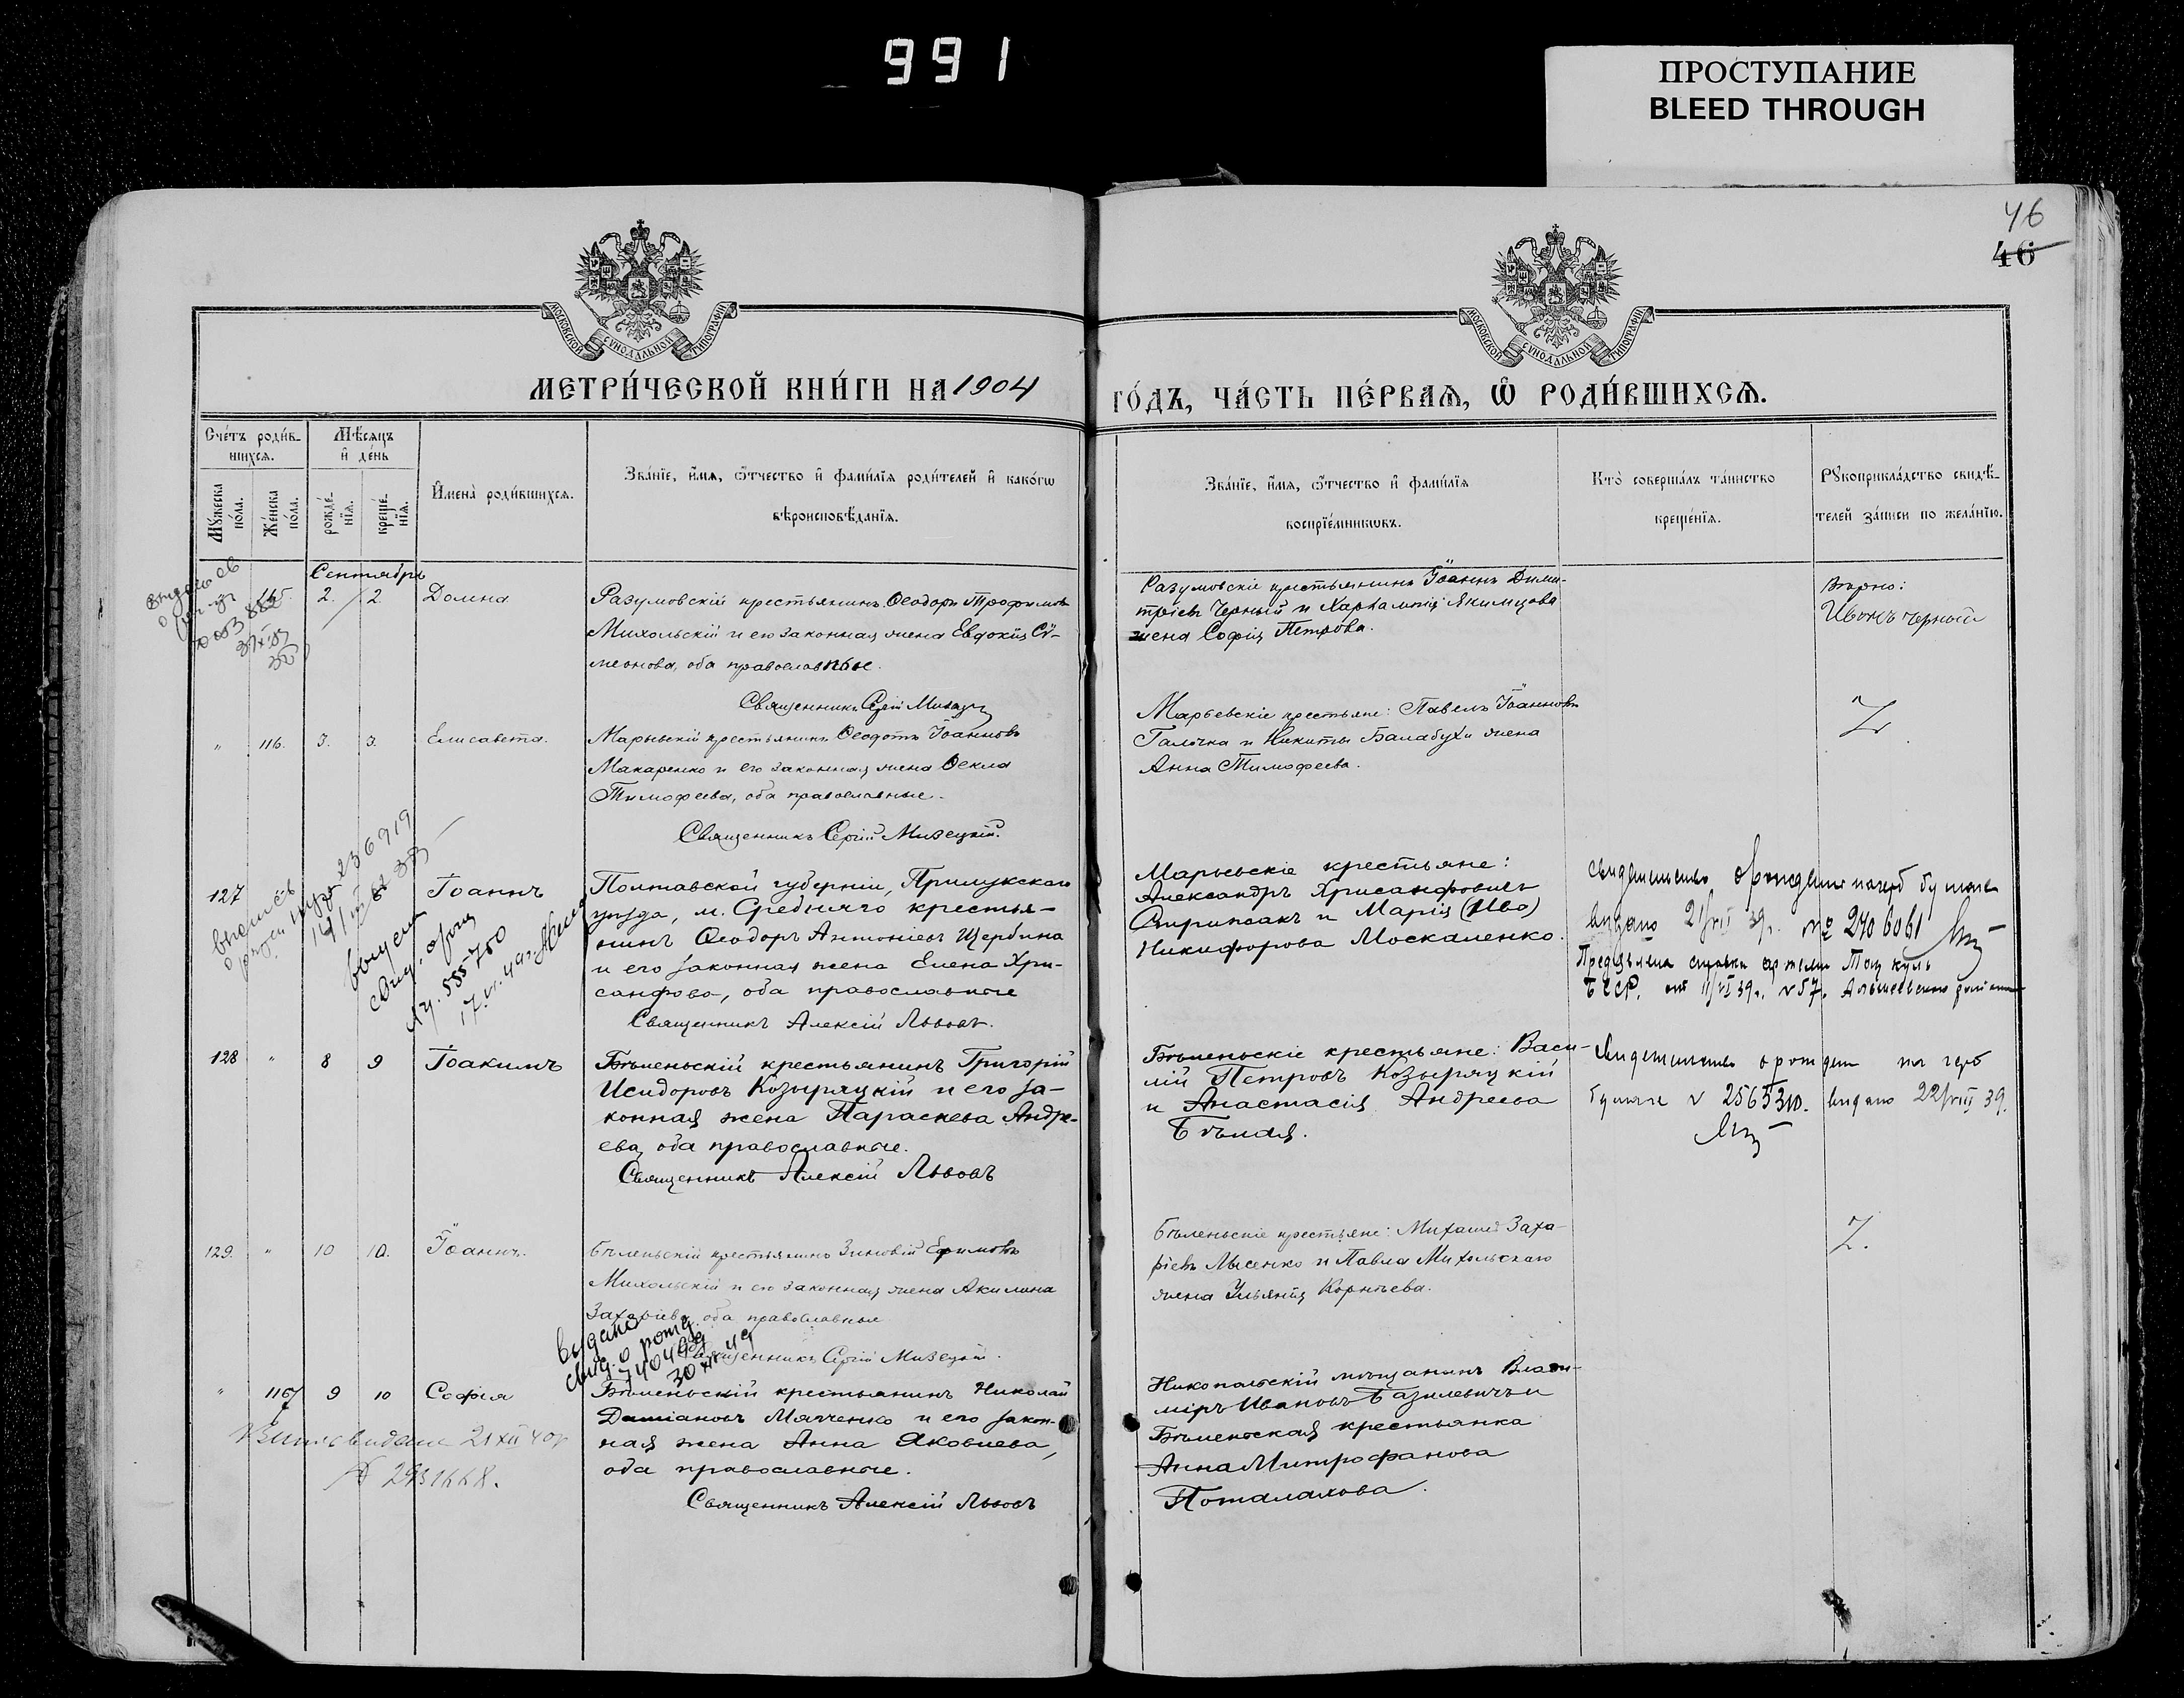 991
ПРОСТУПАНИЕ
BLEED THROUGH
46
46
МОСКОВСКОЙ СУНОДАЛЬНОЙ ТИПОГРАФІИ
МОСКОВСКОЙ СУНОДАЛЬНОЙ ТИПОГРАФІИ
МЕТРИ́ЧЕСКОЙ КНИ́ГИ НА 1904
ГО́ДЪ, ЧА́СТЬ ПЕ́РВАѦ, Ѡ҆ РОДИ́ВШИХСѦ.
Сче́тъ роди́в-
шихсѧ.
Мꙋжеска по́ла.
Же́нска по́ла.
Мѣ́сѧцъ и҆ де́нь
рожде́-
нїѧ.
креще́-
нїѧ.
И҆мена̀ роди́вшихсѧ.
Зва́нїе, и҆́мѧ, ѻ҆́тчество и҆ фами́лїѧ роди́телей и҆ како́гѡ
вѣроисповѣ́данїѧ.
Зва́нїе, и҆́мѧ, ѻ҆́тчество и҆ фами́лїѧ
воспрїе́мникѡвъ.
Кто̀ соверша́лъ та́инство
креще́нїѧ.
Рꙋкоприкла́дство свидѣ́-
телей за́писи по жела́нїю.
Сентябрь
115. 2. 2. Домна
Разумовскій крестьянинъ Ѳеодоръ Трофимовъ
Михольскій и его законная жена Евдокія Сѵ-
меонова, оба православные.
Священникъ Сергій Мизецкій
Разумовскіе крестьянинъ Іоаннъ Дими-
тріевъ Черный и Харлампія Якимцова
жена Софія Петрова.
Вѣрно:
Иванъ Черный
" 116. 3. 3. Елисавета.
Марьевскій крестьянинъ Ѳеодотъ Іоанновъ
Макаренко и его законная жена Ѳекла
Тимофеева, оба православные.
Священникъ Сергій Мизецкій.
Марьевскіе крестьяне: Павелъ Іоанновъ
Галочка и Никиты Балабухи жена
Анна Тимофеева.
Z
127 Іоаннъ
Полтавской губерніи, Прилукскаго
уѣзда, м. Средняго крестья-
нинъ Ѳеодоръ Антоніевъ Щербина
и его законная жена Елена Хри-
санфова, оба православные
Священникъ Алексій Львовъ.
Марьевскіе крестьяне:
Александръ Хрисанфовичъ
и Марія (Ива)
Никифорова Москаленко.
видано 21/VII 39г. № 2406061
236919
555750
128 " 8 9 Іоакимъ
Бѣленьскій крестьянинъ Григорій
Исидоровъ Козыряцкій и его за-
конная жена Параскева Андре-
ева, оба православные.
Священникъ Алексій Львовъ
Бѣленьскіе крестьяне: Васи-
лій Петровъ Козыряцкій
и Анастасія Андреева
Бѣлая.
2565310. видано 22/VIII 39.
129. " 10 10. Іоаннъ.
Бѣленьскій крестьянинъ Зиновій Ефимовъ
Михольскій и его законная жена Акилина
Захаріева, оба православные
Священникъ Сергій Мизецкій.
Бѣленьскіе крестьяне: Михаилъ Заха-
ріевъ Лысенко и Павла Михольскаго
жена Ульянія Корнѣева.
Z.
" 116 9 10 Софія
Бѣленьскій крестьянинъ Николай
Даміановъ Мяченко и его закон-
ная жена Анна Яковлева,
оба православные.
Священникъ Алексій Львовъ
Никопольскій мѣщанинъ Влади-
міръ Ивановъ Базилевичъ и
Бѣленьская крестьянка
Анна Митрофанова
Поталахова.
21 XII 40р